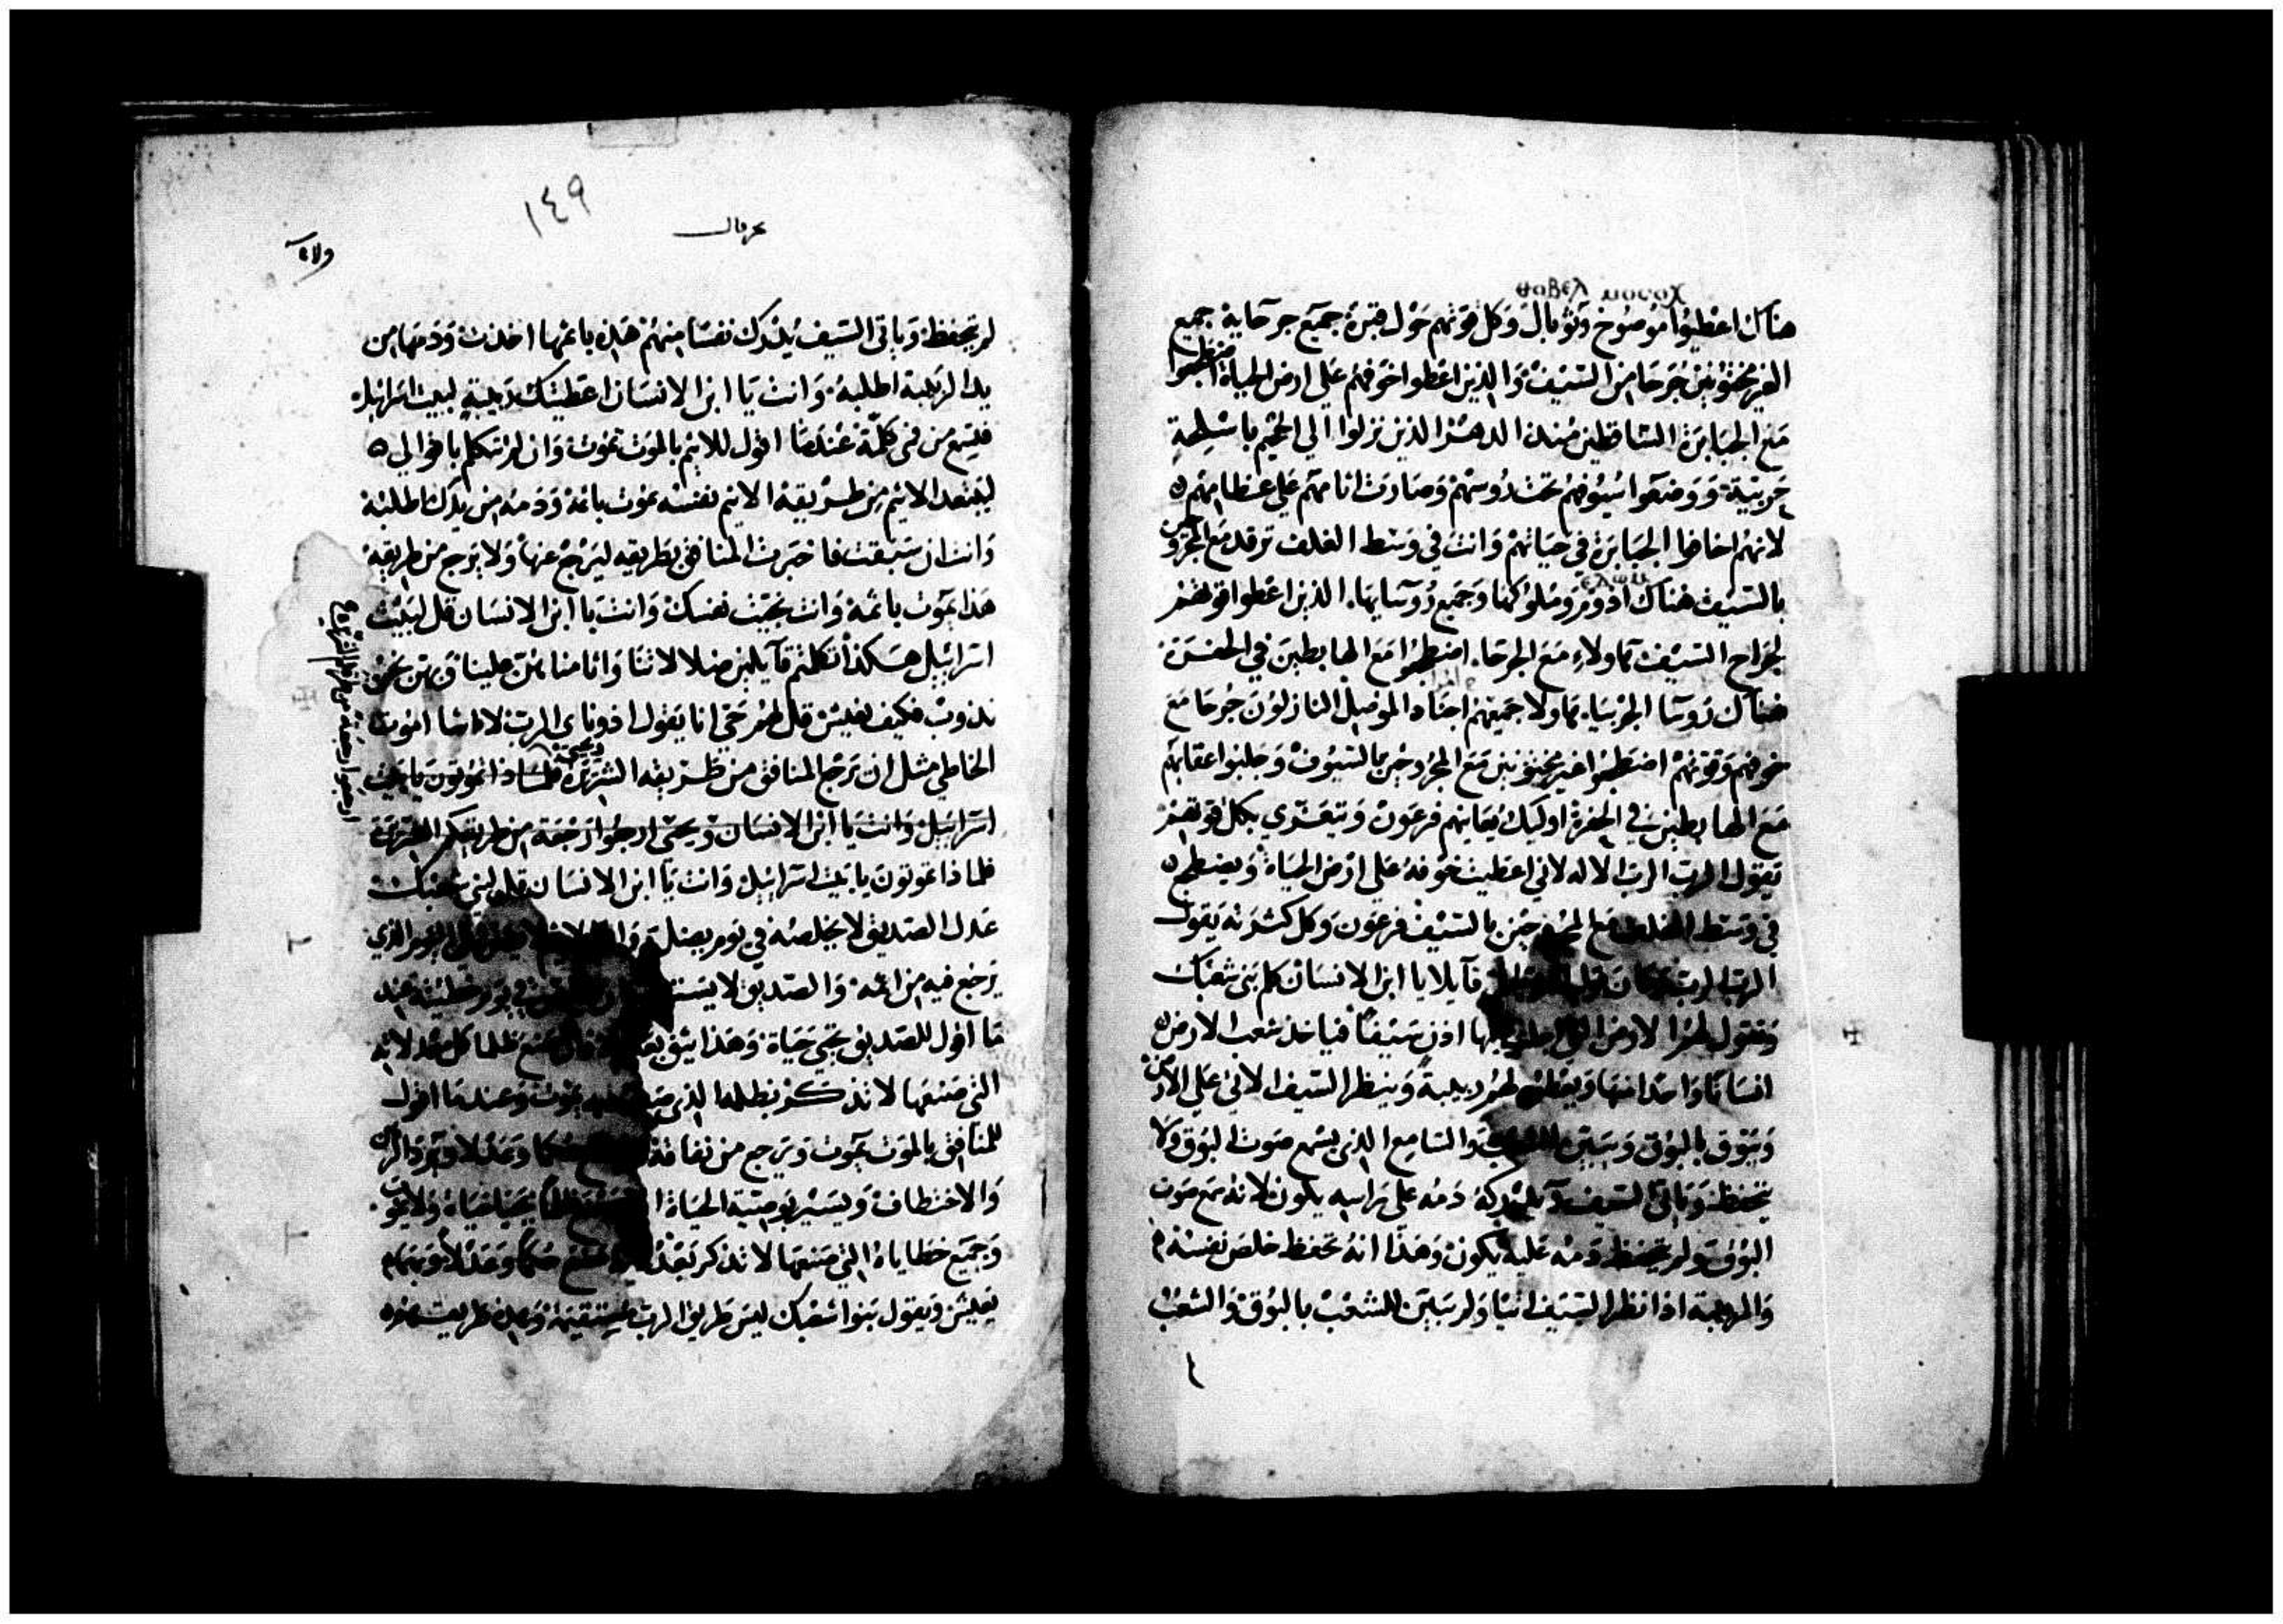 ⲑⲟⲃⲉⲗ ⲙⲟⲥⲟⲭ
هناك اعطيوا موصوخ وثوبال وكل قوتهم حول قبره جميع جرحايه جميع
الغير مختونين جرحا من السيف والذين اعطوا خوفهم على ارض الحياة اضطجعوا
مع الجبابرة الساقطين منذ الدهر الذين نزلوا الى الجحيم باسلحة
حربية ووضعوا سيوفهم تحت رؤسهم وصارت اثامهم على عظامهم
لانهم اخافوا الجبابرة في حياتهم وانت في وسط الغلف ترقد مع المجروحين
بالسيف هناك ادوم وملوكها وجميع رؤسايها الذين اعطوا قوتهم
لجراح السيف هاولاء مع الجرحا اضطجعوا مع الهابطين في الحفرة
هناك روسا الجربيا هاولا جميعهم اجناد الموصل النازلون جرحا مع
خوفهم وقوتهم اضطجعوا غير مختونين مع المجروحين بالسيوف وجلبوا عقابهم
مع الهابطين في الحفرة اوليك يعاينهم فرعون ويتعزى بكل قوتهم
يقول الرب الرب الاله لاني اعطيت خوفه على ارض الحياة ويضطجع
في وسط الغلف مع المجروحين بالسيف فرعون وكل كثرته يقول
الرب الرب وكان قول الرب قايلا يا ابن الانسان كلم بني شعبك
وتقول لهم الارض التي اجلب عليها اذن سيفا فياخذ شعب الارض
انسانا واحدا منها ويعطونه لهم ربيبة وينظر السيف الاتي على الارض
ويبوق بالبوق ويبين للشعب والسامع الذي يسمع صوت البوق ولا
يتحفظ وياتي السيف ويدركه دمه على راسه يكون لانه سمع صوت
البوق ولم يتحفظ دمه عليه يكون وهذا انه تحفظ خلص نفسه
والربيبة اذا نظر السيف اتيا ولم يبين للشعب بالبوق والشعب
١٤٩
حزقيال
لم يتحفظ وياتي السيف يدرك نفسا منهم هذه باثمها اخذت ودمها من
يد الربيبة اطلبه وانت يا ابن الانسان اعطيتك ربيبة لبيت اسراييل
فتسمع من فمي كلمة عندما اقول للاثيم بالموت تموت وان لم تتكلم باقوالي
ليبتعد الاثيم من طريقه الاثيم نفسه يموت باثمه ودمه من يدك اطلبه
وانت ان سبقت فاخبرت المنافق بطريقه ليرجع عنها ولا يرجع من طريقه
هذا يموت باثمه وانت نجيت نفسك وانت يا ابن الانسان قل لبيت
اسراييل هكذا تكلمتم قايلين ضلالاتنا واثامنا هن علينا وبهن نحن
نذوب فكيف نعيش قل لهم حي انا يقول ادوناي الرب لا اشا موت
الخاطي مثل ان يرجع المنافق من طريقه الشريرة فلماذا تموتون يا بيت
اسراييل وانت يا ابن الانسان ويحيى ارجعوا رجعة من طريقكم الشريرة
فلماذا تموتون يا بيت اسراييل وانت يا ابن الانسان قل لبني شعبك
عدل الصديق لا يخلصه في يوم يضل اليوم الذي
يرجع فيه من اثمه والصديق لا يستطيع في يوم خطيته عند
ما اقول للصديق تحيى حياة وهذا يثق ظلما كل عدلاته
التي صنعها لا تذكر بظلمه الذي صنع يموت وعندما اقول
للمنافق بالموت تموت ويرجع من نفاقه حكما وعدلا ويرد الرهن
والاختطاف ويسير بوصية الحياة يحيا حياة ولا يموت
وجميع خطاياه التي صنعها لا تذكر بعد صنع حكما وعدلا وبهم
يعيش ويقول بنوا شعبك ليس طريق الرب مستقيمة وهذه طريقهم
ارجعوا رجعة من طرقكم الشريرة